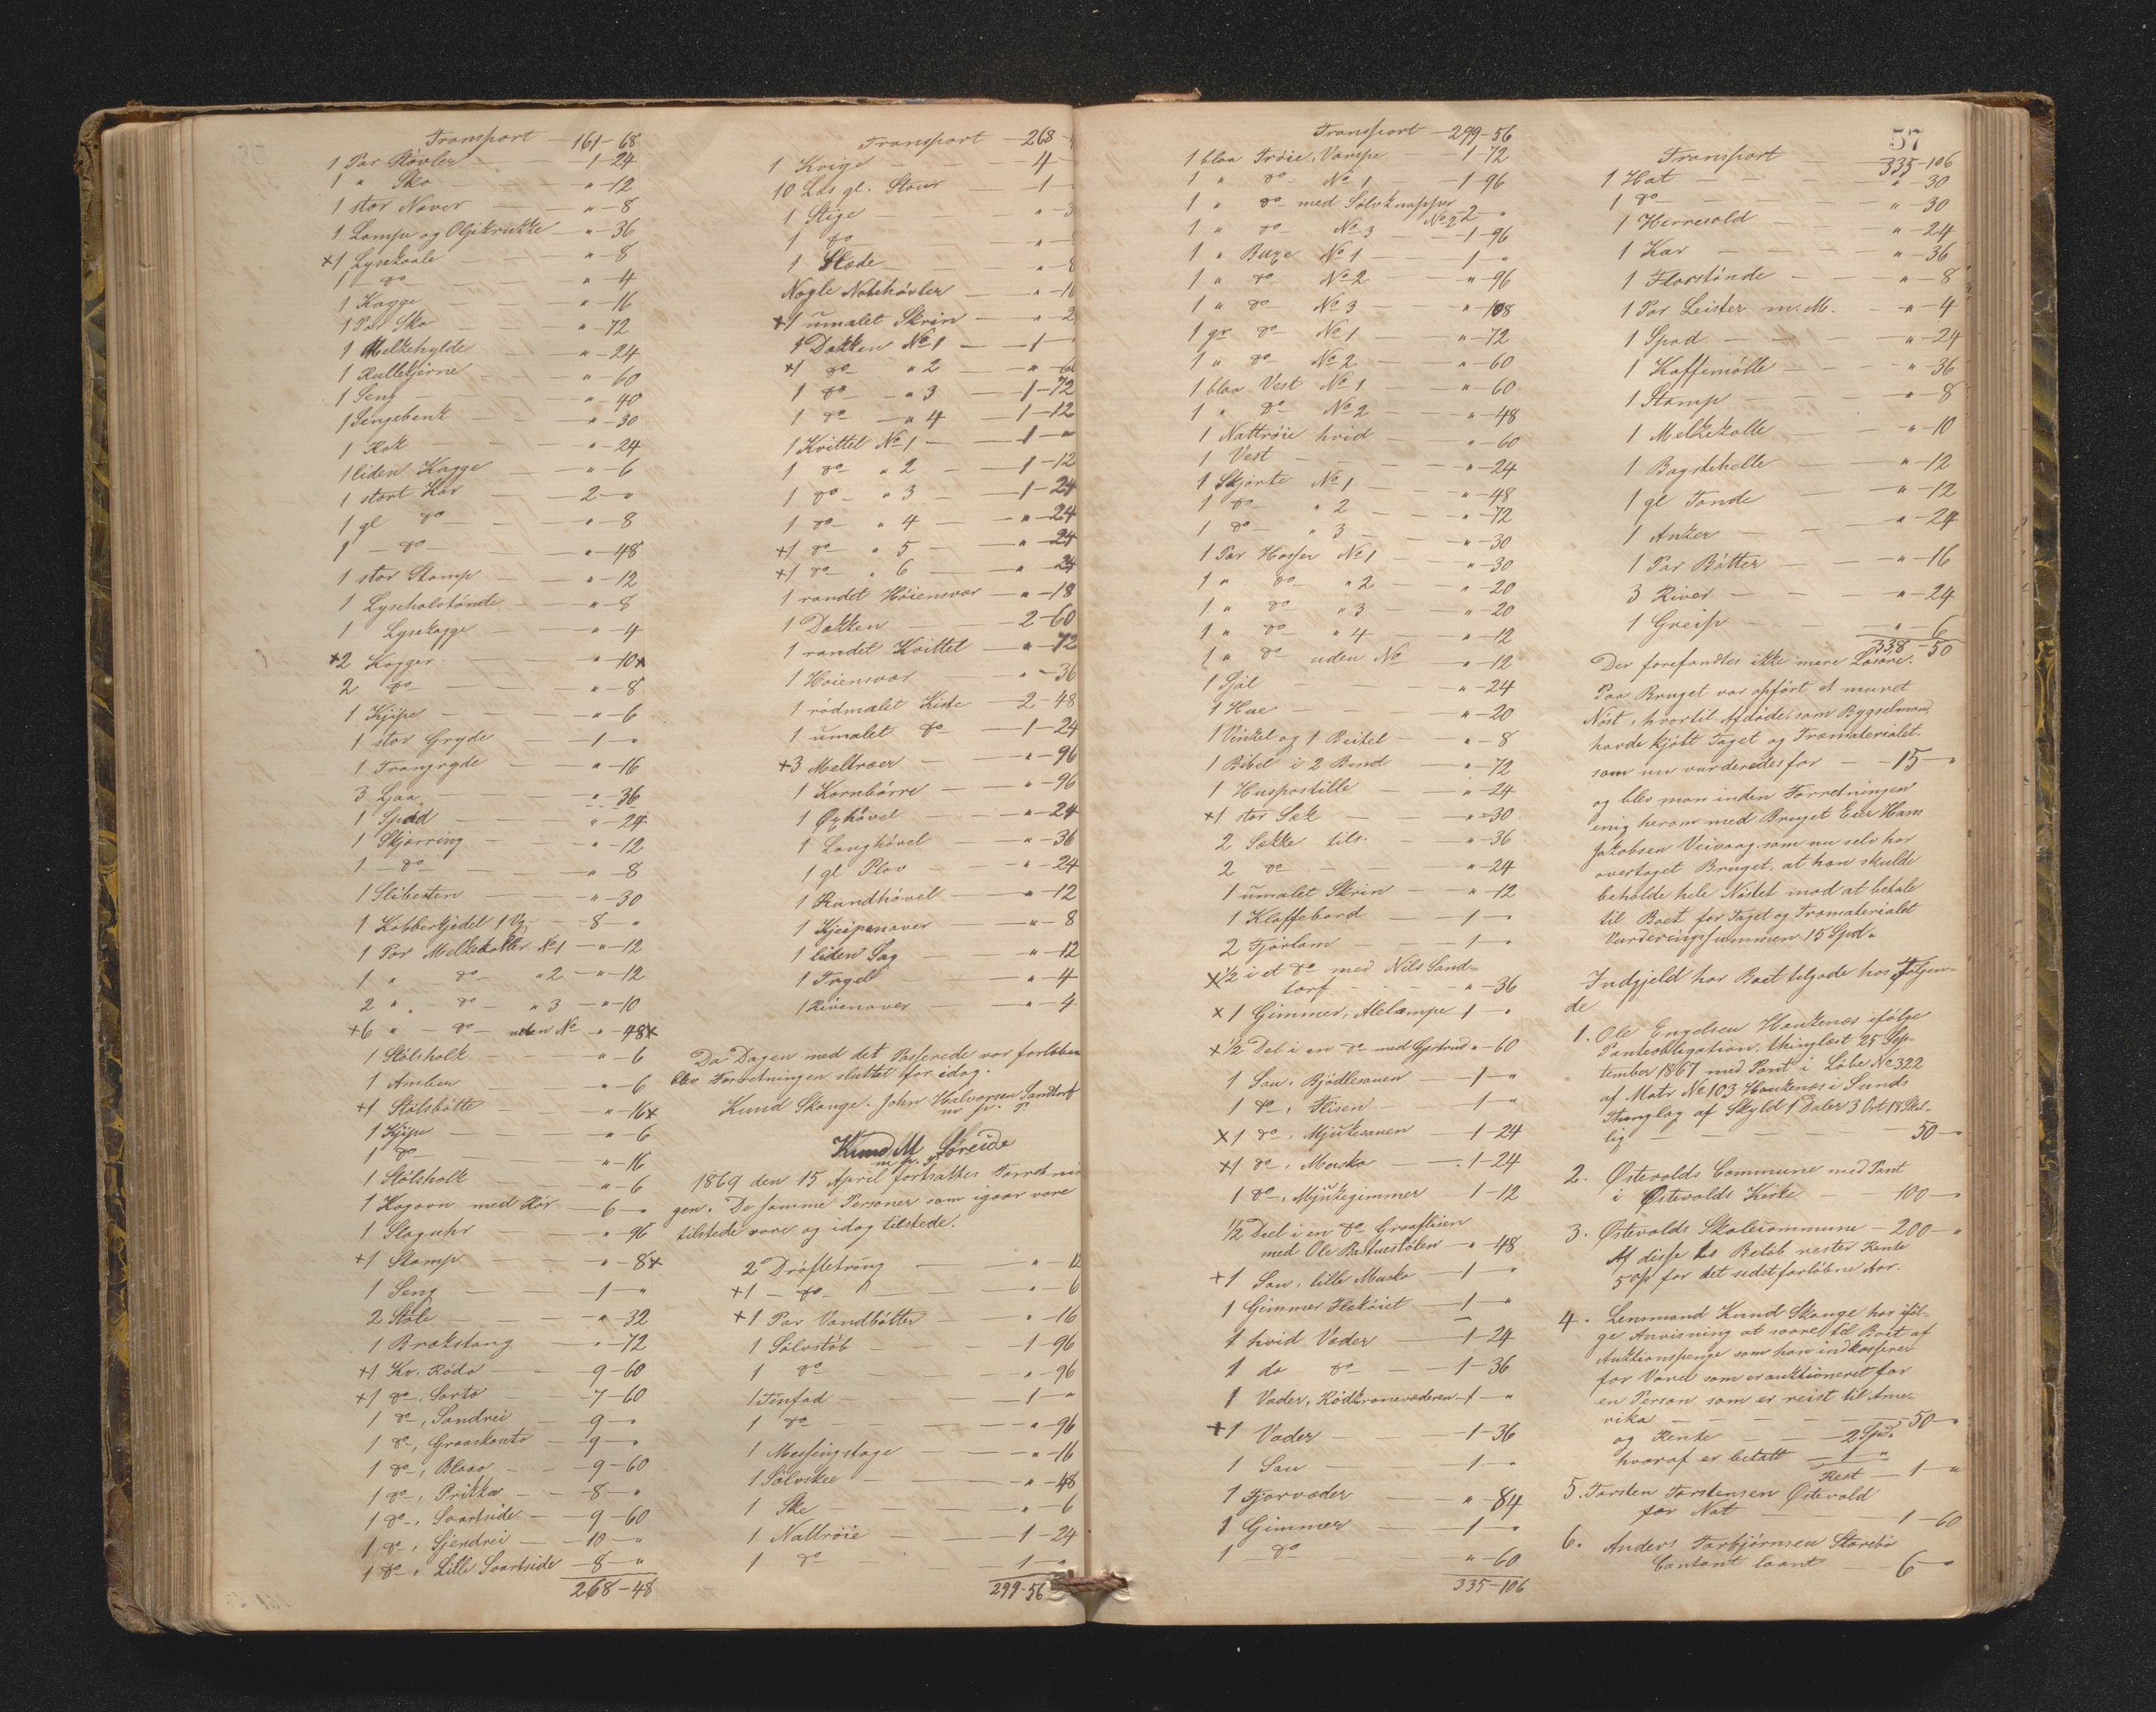 Transport — 161-68
1 Par Støvler — 1-24
1 " Sko — " -12
1 stor Naver — " -8
1 Lampe og Oljekrukke — " -36
+1 Lysekaale — " -8
1 do — " -4
1 Kagge — " -16
1 Par Sko — " -72
1 Melkehylde — " -24
1 Rullekjerne — " -60
1 Seng — " -40
1 Sengebenk — " -30
1 Rok — " -24
1 liden Kagge — " -6
1 stort Kar — 2 - "
1 gl do — " -8
1 - do — " -48
1 stor Stamp — " -12
1 Lyseholstønde — " -8
1 Lysekagge — " -4
+2 Kagger — " -10x
2 do — " -8
1 Kjipe — " -6
1 stor Gryde — 1 - "
1 Trangryde — " -16
3 Ljaa — " -36
1 Spad — " -24
1 Skjæring — " -12
1 - do — " -8
1 Slibesten — " -30
1 Kobberkjedel 1 Vg — 8 - "
1 Par Melkekoller No 1 — " -12
1 " do — " 2 — " -12
2 " - do — " 3 — " -10
+6 " - do — uden No — " -48x
1 Stølsholk — " -6
1 Amber — " -6
+1 Stølsbøtte — " -16x
1 Kjipe — " -6
1 do — " -16
1 Stølsholk — " -6
1 Kogovn med Rør — 6 - "
1 Slaguhr — " -96
+1 Stamp — " -8x
1 Seng — 1 - "
2 Stole — " -32
1 Brækstang — " -72
+1 Ko. Røda — 9-60
+1 do, Sorto — 7-60
1 do, Sandrei — 9 - "
1 do, Graaskanto — 9 - "
1 do, Blaao — 9-60
1 do, Prikka — 8 - "
1 do, Svartside — 9-60
1 do, Gjendrei — 10 - "
1 do, Lille Svartside — 8 - "
268-48
Transport — 268-
1 Kvige — 4 -
10 Læs gl. Staur — 1 -
1 Stige — " -3
1 do — " -8
1 Slæde — " -8
Nogle Notehøvler — " -16
+1 umalet Skrin — " -2
1 Dækken No 1 — 1 -
+1 do " 2 — " -60
1 do - " 3 — 1-72
1 do - " 4 — 1-12
1 Kvittel No 1 — 1 - "
1 do " 2 — 1-12
1 do - " 3 — 1-24
1 do - " 4 — " -24
+1 do - " 5 — " -24
+1 do - " 6 — " -24
1 randet Høiensvær — " -18
1 Dækken — 2-60
1 randet Kvittel — " -72
1 Høiensvær — " -36
1 rødmalet Kiste — 2-48
1 umalet do — 1-24
+3 Meltræer — " -96
1 Kornbørre — " -96
1 Øxhøvel — " -24
1 Langhøvel — " -36
1 gl Plov — " -24
1 Randhøvel — " -12
1 Kjeipenaver — " -8
1 liden Sag — " -12
1 Tagel — " -4
1 Rivenaver — " -4
Da Dagen med det Passerede var forløben
blev Forretningen sluttet for idag.
Knud Skauge. John Halvorsen Sandtorf
m. p. P.
Knud M Søreide
m. p. P.
1869 den 15 April fortsattes Forretnin
gen. De samme Personer som igaar vare
tilstede vare og idag tilstede.
2 Drøftetroug — " -12
+1 - do — " -6
+1 Par Vandbøtter — " -16
1 Sølvstøb — 1-96
1 do — " -96
1 Tinfad — 1 - "
1 do — " -96
1 Messingstage — " -16
1 Sølvskee — " -48
1 Ske — " -6
1 Nattrøie — 1-24
1 do — 1 - "
299-56
Transport — 299-56
1 blaa Trøie, Vampe — 1-72
1 " do No 1 — 1-96
1 " do med Sølvknapper No 2 — 2 - "
1 " do No 3 — 1-96
1 " Buxe No 1 — 1 - "
1 " do No 2 — " -96
1 " do No 3 — " -108
1 gr do No 1 — " -72
1 " do No 2 — " -60
1 blaa Vest No 1 — " -60
1 " do No 2 — " -48
1 Nattrøie hvid — " -60
1 Vest — " -24
1 Skjorte No 1 — " -48
1 do " 2 — " -72
1 do - " 3 — " -30
1 Par Hoser No 1 — " -30
1 " do " 2 — " -20
1 " do " 3 — " -20
1 " do " 4 — " -12
1 " do uden No — " -12
1 Sjal — " -24
1 Hue — " -20
1 Vinkel og 1 Beitel — " -8
1 Bibel i 2 Bind — " -72
1 Huspostille — " -24
+1 stor Sæk — " -30
2 Sække tils. — " -36
2 do — " -24
1 umalet Skrin — " -12
1 Klaffebord — 1 - "
2 Fjørlam — 1 - "
x1/2 i et do med Nils Sand-
torf — " -36
x1 Gimmer, Alelampe 1 - "
x1/2 Del i en do med Gjertrud " -60
1 Sau, Bjødlesauen — 1 - "
1 do, Flisen — 1 - "
x1 do, Mjukesauen — 1-24
+1 do, Morska — 1-24
1 do, Mjukegimmer — 1-12
1/2 Deel i en do Graaflisen
med Ole Bastuestølen — " -48
+1 Sau, lille Morska — 1 - "
1 Gimmer Flekøiet — 1 - "
1 hvid Væder — 1-24
1 do do — 1-36
1 Væder, Rødkranevæderen — 1 - "
+1 Væder — 1-36
1 Sau — 1 - "
1 Fjorvæder — " -84
1 Gimmer — 1 - "
1 do — " -60
335-106
57
Transport — 335-106
1 Hat — " -30
1 do — " -30
1 Hirresold — " -24
1 Kar — " -36
1 Florstønde — " -8
1 Par Leister m. M. — " -4
1 Spad — " -24
1 Kaffemølle — " -36
1 Stamp — " -8
1 Melkekolle — " -10
1 Bagstehelle — " -12
1 gl Tønde — " -12
1 Anker — " -24
1 Par Bøtter — " -16
3 River — " -24
1 Greip — " -6
338-50
Der forefandtes ikke mere Løsøre.
Paa Bruget var opført et muret
Nøst, hvortil Afdøde, som Bygselmand,
havde kjøbt Taget og Træmaterialet.
som nu vurderedes for — 15 - "
og blev man inden Forretningen
enig herom med Bruget Eier Ham
Jakobsen Veivaag. som nu selv har
overtaget Bruget, at han skulde
beholde hele Nøstet mod at betale
til Boet for Taget og Træmaterialet
Vurderingssummen 15 Spd.
Indgjeld har Boet tilgode hos følgen-
de
1. Ole Engelsen Haukenæs ifølge
Panteobligation, thinglæst 25 Sep-
tember 1867 med Pant i Løbe No 322
af Matr No 103 Haukenæs i Sunds
Thinglag af Skyld 1 Daler 3 Ort 18 Skil-
lig — 50 - "
2. Østevolds Commune med Pant
i Østevolds Kirke — 100 - "
3. Østevolds Skolecommune — 200 - "
Af disse to Beløb rester Rente
5 op for det sidst forløbne Aar.
4. Lensmand Knud Skauge har iføl-
ge Anvisning at svare til Boet af
Auktionspenge som han indkasserer
for Varer som er auktioneret for
en Person som er reist til Ame-
rika — 50 - "
og Rente — 2 Spd.
hvoraf er betalt 1 "
Rest — 1 - "
5. Torsten Torstensen Østevold
for Not — 1-60
6. Anders Torbjørnsen Storebø
Contant laant — 6 - "